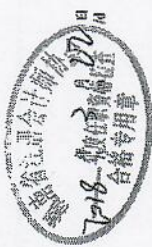 湖南省注册会计师协会
2018年度任职资格检查
合格专用章
月 日